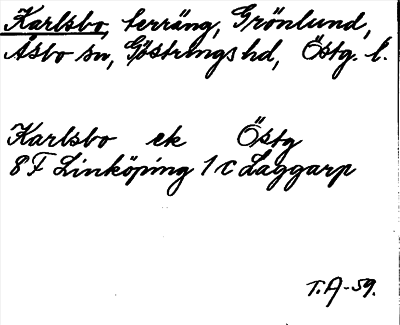 Karlsbo, terräng, Grönlund,
Åsbo sn, Göstrings hd, Östg. l.
Karlsbo ek Östg
8F Linköping 1c Laggarp
T.A-59.